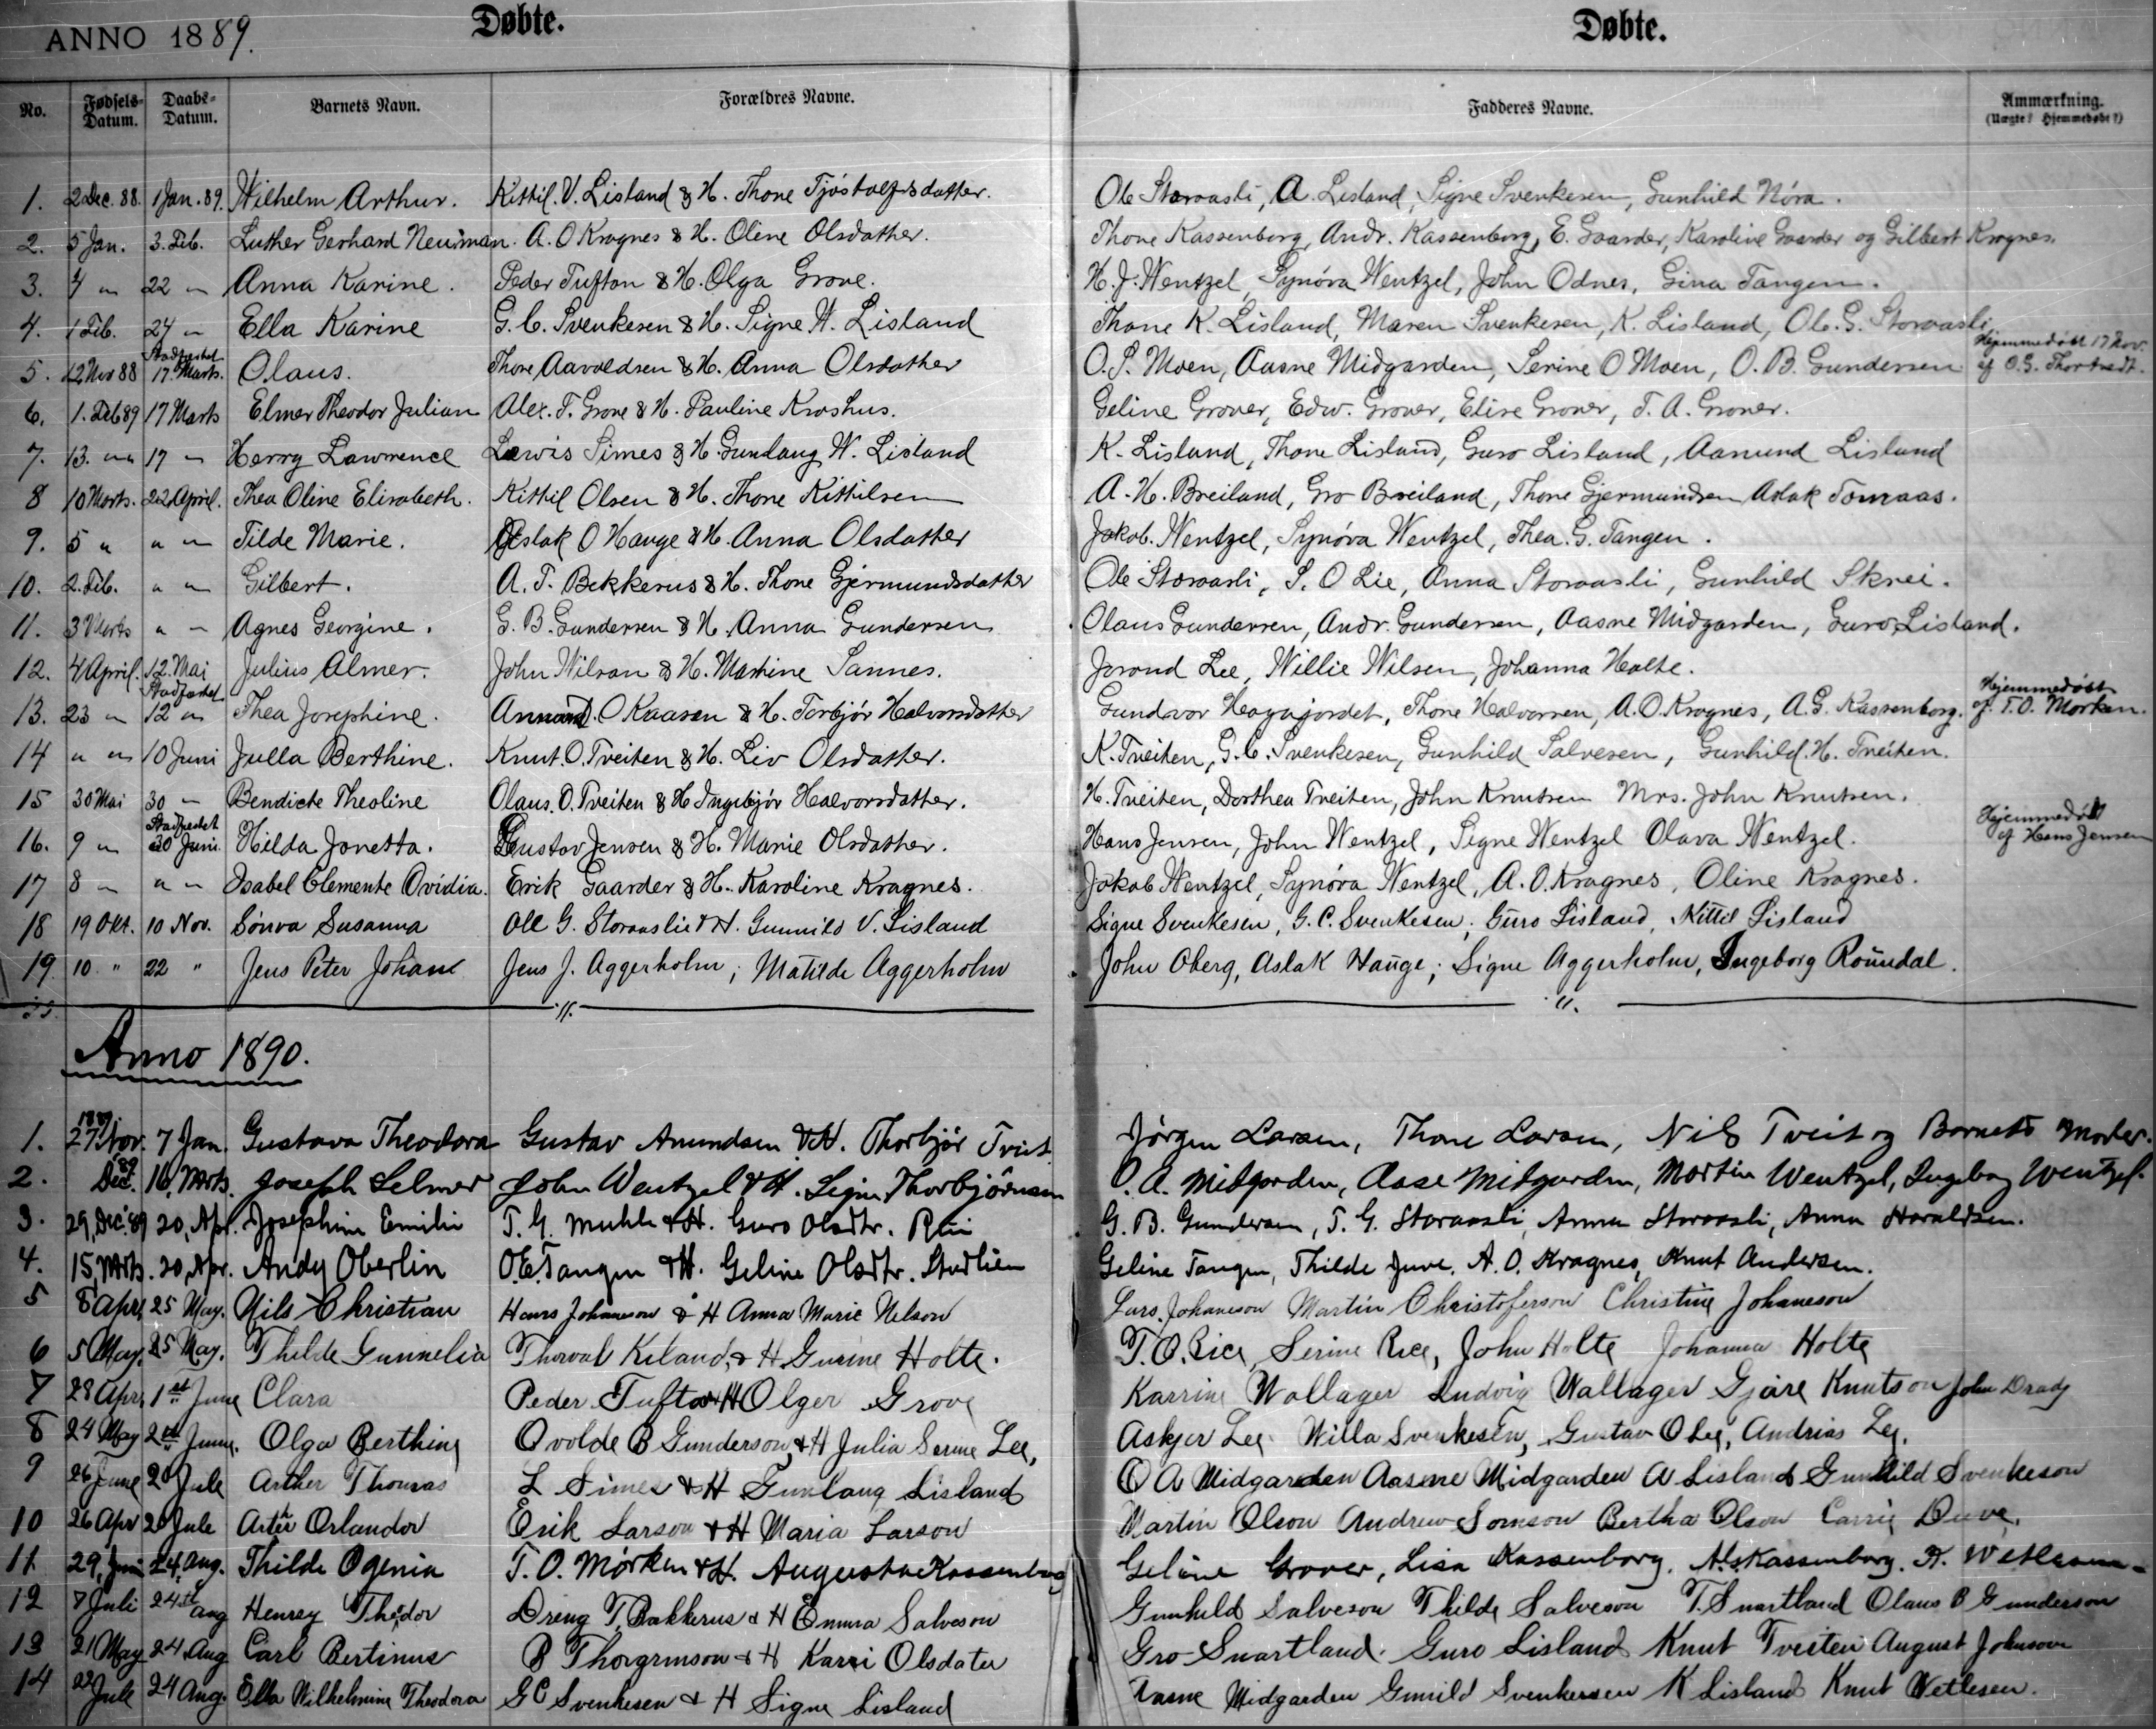 ANNO 1889. Døbte. Døbte.
No. Fødsels-Datum. Daabs-Datum. Barnets Navn. Forældres Navne. Fadderes Navne. Anmærkning. (Uægte? Hjemmedøbt?)
1. 2 Dec. 88. 1 Jan. 89. Wilhelm Arthur. Kittil. V. Lisland & H. Thone Tjøstolfsdatter. Ole Storaasli, A. Lisland, Signe Svenkesen, Gunhild Nóra.
2. 5 Jan. 3. Feb. Luther Gerhard Neuman. A. O Kragnes & H. Oline Olsdatter. Thone Kassenborg, Andr. Kassenborg, E. Gaarder, Karoline Gaarder og Gilbert Kragnes.
3. 4 " 22 " Anna Karine. Peder Tufton & H. Olga Grove. H. J. Wentzel, Synóva Wentzel, John Odnes, Gina Tangen.
4. 1 Feb. 24 " Ella Karine G. C. Svenkesen & H. Signe W. Lisland Thone K. Lisland, Maren Svenkesen, K. Lisland, Ole. G. Storaasli
5. 12 Nov 88 Stadfæstet 17. Marts. Olaus. Thore Aavoldsen & H. Anna Olsdatter O. S. Moen, Aasne Midgarden, Serine O Moen, O. B. Gundersen Hjemmedøbt 17 Nov. af O. G. Thortvedt.
6. 1. Feb 89 17 Marts Elmer Theodor Julian Alex. T. Grove & H. Pauline Kroshus. Geline Grover, Edw. Grover, Elise Grover, T. A. Grover.
7. 13. " 17 " Harry Lawrence Lewis Simes & H. Gunlaug W. Lisland K. Lisland, Thone Lisland, Guro Lisland, Aamund Lisland
8 10 Marts. 22 April. Thea Oline Elisabeth. Kittil Olsen & H. Thone Kittilsen A. H. Breiland, Gro Breiland, Thone Gjermundsen Aslak Tomraas.
9. 5 " " " Tilde Marie. Aslak O Hauge & H. Anna Olsdatter Jakob. Wentzel, Synóva Wentzel, Thea. G. Tangen.
10. 2. Feb. " " Gilbert. A. T. Bekkerus & H. Thone Gjermundsdatter Ole Storaasli, S. O Lie, Anna Storaasli, Gunhild Skrei.
11. 3 Marts " " Agnes Georgine. G. B. Gundersen & H. Anna Gundersen Olaus Gundersen, Andr. Gundersen, Aasne Midgarden, Guro Lisland.
12. 4 April. 12. Mai Julius Almer. John Wilson & H. Martine Sannes. Jorond Lee, Willie Wilsen, Johanna Holte.
13. 23 " Stadfæstet 12 " Thea Josephine. Annund. O Kaasen & H. Torbjór Halvorsdatter Gundvor Hagajordet, Thone Halvorsen, A. O. Kragnes, A. G. Kassenborg. Hjemmedøbt af T. O. Mørken.
14 " " 10 Juni Julla Berthine. Knut. O. Treiten & H. Liv Olsdatter. K. Treiten, G. C. Svenkesen, Gunhild Salvesen, Gunhild. H. Treiten.
15 30 Mai 30 " Bendicte Theoline Olaus. O. Treiten & H Ingebjór Halvorsdatter. H. Treiten, Dorthea Treiten, John Knutsen Mrs. John Knutsen.
16. 9 " Stadfæstet 30 Juni Hilda Jonetta. Gustav Jensen & H. Marie Olsdatter. Hans Jensen, John Wentzel, Signe Wentzel Olava Wentzel. Hjemmedøbt af Hans Jensen
17 8 " " " Isabel Clemente Ovidia. Erik Gaarder & H. Karoline Kragnes. Jakob Wentzel, Synóva Wentzel, A. O. Kragnes, Oline Kragnes.
18 19 Okt. 10 Nov. Sónva Susanna Ole G. Storaaslie & H. Gunnild V. Lisland Signe Svenkesen, G. C. Svenkesen; Guro Lisland, Kittil Lisland
19. 10. " 22 " Jens Peter Johan Jens J. Aggerholm; Matilde Aggerholm John Oberg, Aslak Hauge; Signe Aggerholm, Ingeborg Roŭndal.
Anno 1890.
1. 1889 27 Nov. 7 Jan. Gustava Theodora Gustav Amundsen & H. Thorbjór Tvit. Jørgen Larsen, Thone Larsen, Nils Tveit og Barnets Moder.
2. Dec. 89 16, Mrts. Joseph Selmer John Wentzel & H. Signe Thorbjörnsen O. A. Midgarden, Aase Midgarden, Martin Wentzel, Ingeborg Wentzel.
3. 29, Dec. 89 20, Apr. Josephine Emilie T. G. Muhle & H. Guro Olsdtr. Rui G. B. Gundersen, T. G. Storaasli, Anna Storaasli, Anna Haraldsen.
4. 15, Mrts. 20, Apr. Andy Oberlin O. E. Tangen & H. Geline Olsdtr. Studlien Geline Tangen, Thilde Juve. A. O. Kragnes, Knut Andersen.
5 8 Apr. 25 May. Nils Christian Hans Johaneson & H Anna Marie Nelson Lars. Johaneson Martin Christoferson Christine Johaneson
6 5 May. 25 May. Thilde Gunnelia Thorval Kiland, & H Gurine Holte. T. O. Rice, Serine Rice, John Holte Johanna Holte
7 28 Apr. 1st June Clara Peder Tufto & H Olger Grove Karrine Wallager Ludvig Wallager Gjøre Knutson John Drady
8 24 May 2nd June. Olga Berthine Ovolde B Gunderson, & H Julia Serine Lee, Askjer Lee Willa Svenkesen, Gustav O Lee, Andrias Lee.
9 26 June 20 Jule Arther Thomas L Simes & H Gunlaug Lisland O A Midgarden Aasne Midgarden A Lisland Gunhild Svenkeson
10 26 Apr 20 Jule Arter Orlandor Erik Larson & H Maria Larson Martin Olson Andrew Somson Bertha Olson Carrie
11. 29, Juni 24, Aug. Thilde Ogenia T. O. Mørken & H. Augusta Kassenborg Geline Grover, Lisa Kassenborg. A. G. Kassenborg. K.
12 7 Juli 24th aug Henrey Thedor Dreng T, Bakkerus & H Emma Salveson Gunhild Salveson Thilde Salveson T. Snartland Olaus B Gunderson
13 21 May 24 Aug Carl Bertinus B Thorgrmson & H Karri Olsdater Gro Snartland. Guro Lisland Knut Tveiten August Johnson
14 22 Jule 24 Aug. Ella Wilhelmine Theodora G C Svenkesen & H Signe Lisland Aasne Midgarden Gunild Svenkersen K Lisland Knut Vetlesen.